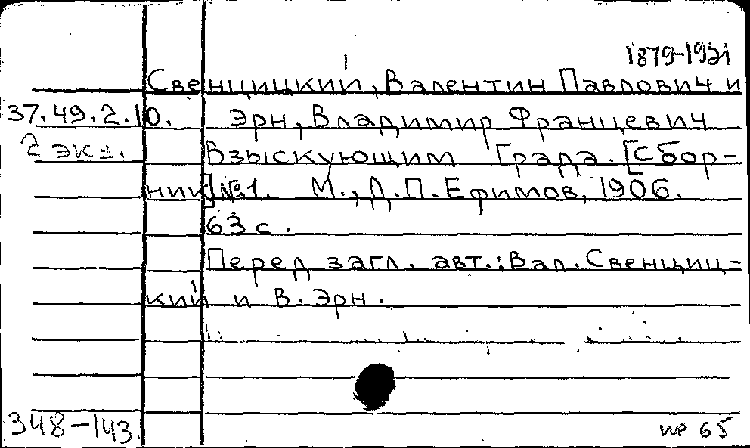 1879-1931
Свенцицкий, Валентин Павлович и
37.49.2.10. Эрн, Владимир Францевич
2 экз. Взыскующим Града. [Сбор-
ник] №1. М., Д.П. Ефимов, 1906.
63 с.
Перед загл. авт.: Вал. Свенциц-
кий и В. Эрн.
348-143.
пр 65